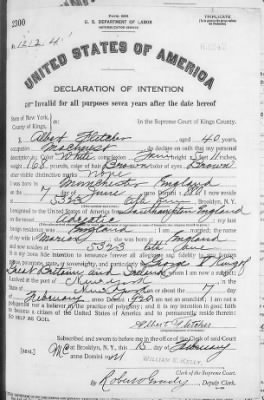 Form 2203
TRIPLICATE
2300
U. S. DEPARTMENT OF LABOR
NATURALIZATION SERVICE
No. 121241
UNITED STATES OF AMERICA
DECLARATION OF INTENTION
Invalid for all purposes seven years after the date hereof
State of New York,
County of Kings,
In the Supreme Court of Kings County.
I, Albert Fletcher, aged 40 years,
occupation Machinist, do declare on oath that my personal
description is: Color White, complexion Fair, height 5 feet 11 inches,
weight 165 pounds, color of hair Brown, color of eyes Brown
other visible distinctive marks none
I was born in Manchester England
on the 7 day of June, anno Domini 1; I now reside
at 5323 6th Ave, Brooklyn, N. Y.
I emigrated to the United States of America from Southampton England
on the vessel; my last
foreign residence was England
wife's name is Marion; she was born in England
and now resides at 5323 6th Ave
It is my bona fide intention to renounce forever all allegiance and fidelity to any foreign
prince, potentate, state, or sovereignty, and particularly to George V King of
Great Britain and Ireland, of whom I am now a subject;
I arrived at the port of New York, in the
State of New York, on or about the 7 day
of February, anno Domini 1920; I am not an anarchist; I am not a
polygamist nor a believer in the practice of polygamy; and it is my intention in good faith
to become a citizen of the United States of America and to permanently reside therein:
SO HELP ME GOD.
Albert Fletcher
Subscribed and sworn to before me in the office of the Clerk of said Court
at Brooklyn, N. Y., this 15 day of February
[SEAL]
anno Domini 1921
WILLIAM E. KELLY
Clerk of the Supreme Court.
By, Deputy Clerk.